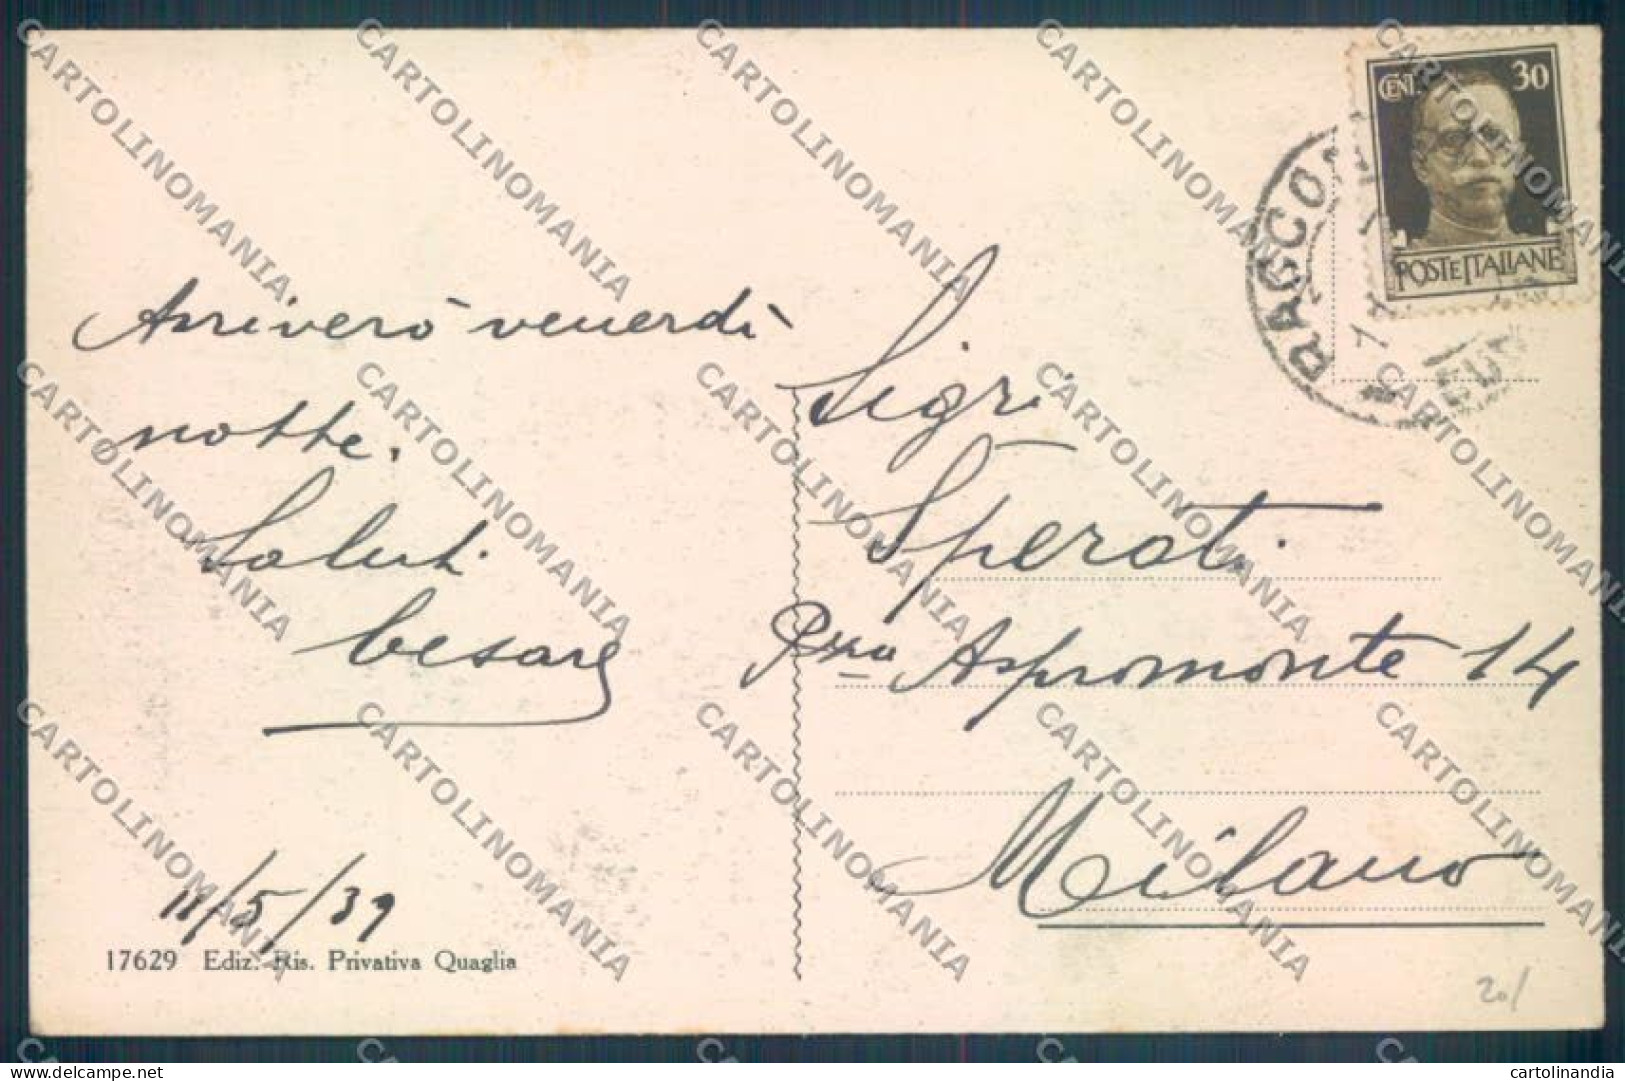 CENT. 30
POSTE ITALIANE
RACCO
Arriverò venerdì
notte.
Saluti
Cesare
11/5/39
17629 Ediz. Ris. Privativa Quaglia
Sigri
Sperati
Pzza Aspromonte 14
Milano
20/
CARTOLINOMANIA
cartolinandia